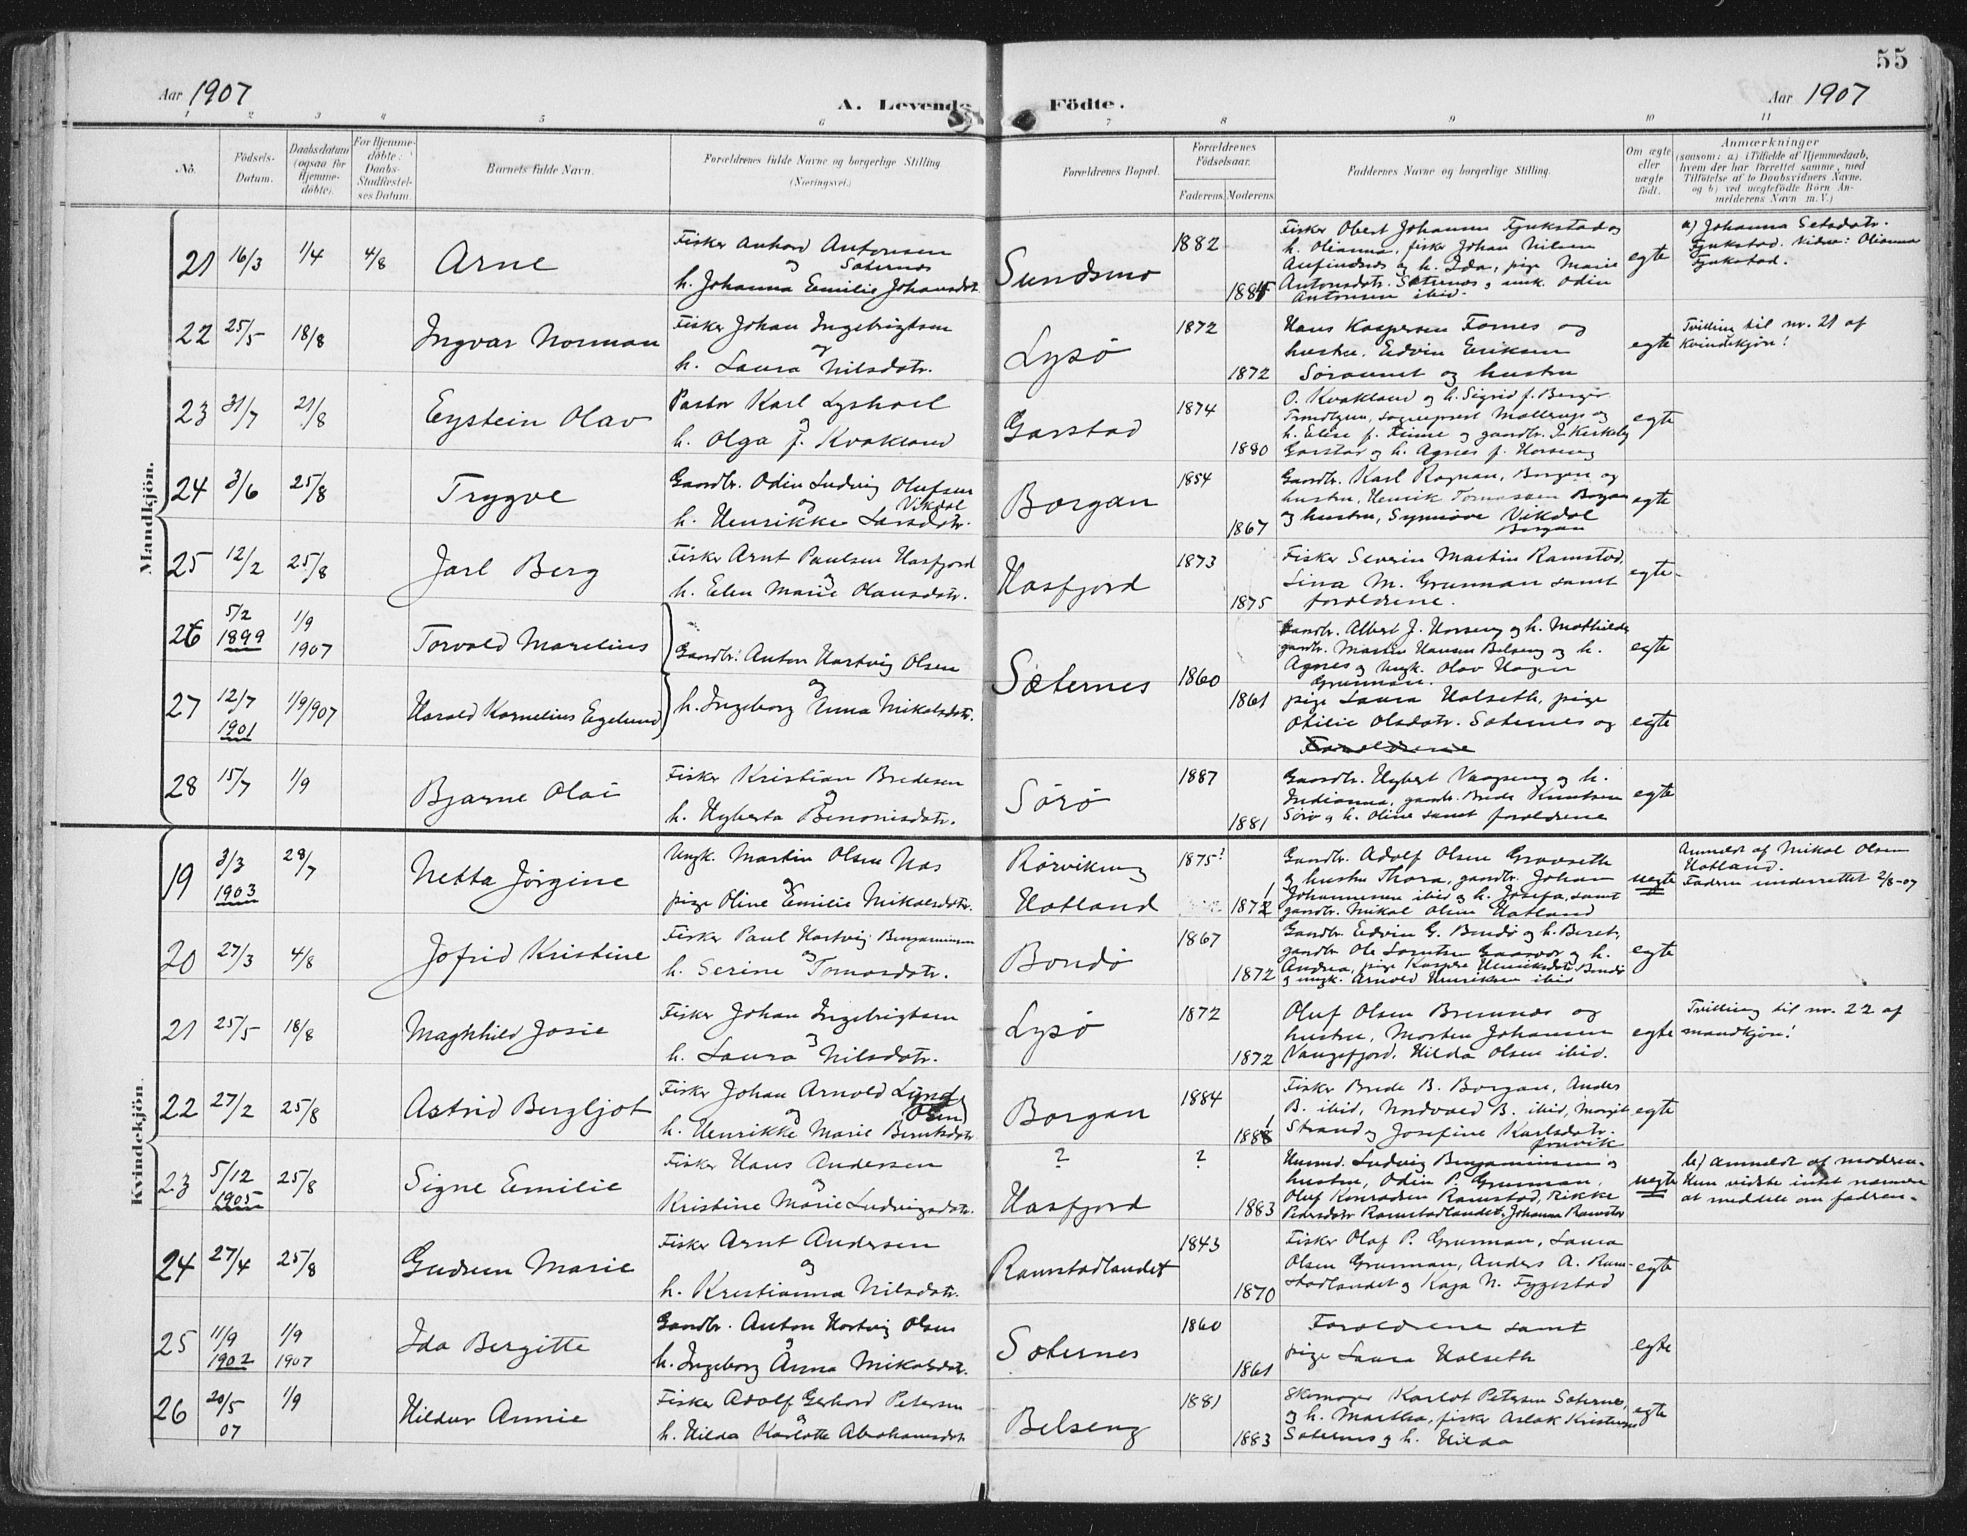 55
Aar 1907
A. Levende Födte.
Aar 1907
1 2 3 4 5 6 7 8 9 10 11
No.
Födsels-
Datum.
Daabsdatum
(ogsaa for
Hjemme-
döbte).
For Hjemme-
döbte:
Daabs-
Stadfæstel-
ses Datum
Barnets fulde Navn.
Forældrenes fulde Navne og borgerlige Stilling
(Næringsvei.)
Forældrenes Bopæl.
Forældrenes
Födselsaar.
Faderens. Moderens.
Faddernes Navne og borgerlige Stilling.
Om ægte
eller
uægte
födt.
Anmærkninger
(saasom: a) i Tilfælde af Hjemmedaab,
hvem der har forrettet samme, med
Tilföielse af to Daabsvidners Navne,
og b) ved uægtefödte Börn An-
melderens Navn m. V.)
Mandkjön.
21 16/3 1/4 4/8 Arne
Fisker Anhord Antonsen
og Søternes
h. Johanna Emilie Johansdat
Sundsmo
1882
Fisker Obert Johansen Fjukstad og
h. Olianna, fisker Johan Nilsen
Arfindsnes og h. Ida, pige Marie
Antonsdatr. Søternes og ungk. Odin
Antonsen ibid.
egte
a) Johanna Setsdatr.
Fjukstad. Vidne: Olianna
Fjukstad.
22 25/5 18/8 Ingvar Norman
Fisker Johan Ingebrigtsen
og
h. Laura Nilsdatr.
Lysø
1872
1872
Hans Kaspersen Fornes og
hustru. Edvin Eriksen
Søraunet og hustru
egte
Tvilling til nr. 21 af
Kvindekjøn!
23 31/7 21/8 Eystein Olav
Pastor Karl Lyshoel
og
h. Olga f. Kvakland
Garstad
1874
1880
O. Kvakland og h. Sigrid f. Berger
Trondhjem, sogneprest Møllerup og
h. Elise f. Finne og gaardbr. J. Kirkeby
Garstad og h. Agnes f. Horseng
egte
24 3/6 25/8 Trygve
Gaardbr. Odin Ludvig Olufsen
og Vikdal
h. Henrikke Larsdatr.
Borgan
1854
1867
Gaardbr. Karl Ragnan, Borgan og
hustru, Henrik Tomassen Borgan
og hustru, Synnøve Vikdal
Borgan
egte
25 12/2 25/8 Jarl Berg
Fisker Arnt Paulsen Hasfjord
og
h. Elen Marie Olausdatr.
Hasfjord
1873
1875
Fisker Severin Martin Ramstad.
Lina M. Grunnan samt
forældrene.
egte
26 5/2
1899 1/9
1907 Torvald Marelius
Gaardbr. Anton Hartvig Olsen
og
h. Ingeborg Anna Mikalsdatr.
Søternes
1860
1861
Gaardbr. Albert J. Horseng og h. Mathilde
gaardbr. Martin Hansen Belseng og h.
Agnes og ungk. Olav Hagen
Grunnan.
egte
27 12/7
1901 1/9/907 Harald Kornelius Egelund
pige Laura Halseth, pige
Otilie Olsdatr. Søternes og
Forældrene
egte
28 15/7 1/9 Bjarne Olai
Fisker Kristian Bredesen
og
h. Hyberta Benonisdatr.
Sørø
1887
1881
Gaardbr. Hybert Vaagseng og h.
Indianna, gaardbr. Brede Knutsen
Sørø og h. Oline samt forældrene
egte
Kvindekjön.
19 3/3
1903 28/7 Netta Jørgine
Ungk. Martin Olsen Nas
og
pige Oline Emilie Mikalsdatr.
Rørvikeng
Hatland
1875?
1872
Gaardbr. Adolf Olsen Gravseth
og hustru Thora, gaardbr. Johan
Johannessen ibid og h. Josefa, samt
gaardbr. Mikal Olsen Hatland
uegte
Anmeldt af Mikal Olsen
Hatland.
Faderen underrettet 2/8-07
20 27/3 4/8 Jofrid Kristine
Fisker Paul Hartvig Benjaminsen
og
h. Serine Tomasdatr.
Bondø
1867
1872
Gaardbr. Edvin G. Bondø og h. Beret,
gaardbr. Ole Larntsen Gaasvær og h.
Andrea, pige Kaspara Henriksdatr. Bondø
og ungk. Arnold Henriksen ibid
egte
21 25/5 18/8 Maghhild Josie
Fisker Johan Ingebrigtsen
og
h. Laura Nilsdatr.
Lysø
1872
1872
Oluf Olsen Bremnes og
hustru, Morten Johansen
Vangsfjord. Hilda Olsen ibid.
egte
Tvilling til nr. 22 af
mandkjøn!
22 27/2 25/8 Astrid Bergljot
Fisker Johan Arnold Lund
og Olsen
h. Henrikke Marie Berntsdatr
Borgan
1884
Fisker Brede B. Borgan, Anders
B. ibid, Nordvald B. ibid, Margit
Strand og Josefine Karlsdatr.
egte
23 5/12
1905 25/8 Signe Emilie
Fisker Hans Andersen
og
Kristine Marie Ludvigsdatr.
?
Hasfjord
?
1883
Husmd. Ludvig Benjaminsen og
hustru, Odin P. Grunnan,
Oluf Konradsen Ramstad, Rikke
Pedersdatr Ramstadlandet. Johanna Ramstad
uegte
b) anmeldt af moderen.
Kun vidste intet nærmere
at meddele om fadren.
24 27/4 25/8 Gudrun Marie
Fisker Arnt Andersen
og
h. Kristianna Nilsdatr.
Ramstadlandet
1843
1870
Fisker Olaf P. Grunnan, Laura
Olsen Grunnan, Anders A. Ram-
stadlandet og Kaja N. Fyggestad
egte
25 11/9
1902 1/9
1907 Ida Bergitte
Gaardbr. Anton Hartvig Olsen
og
h. Ingeborg Anna Mikalsdatr.
Søternes
1860
1861
Forældrene samt
pige Laura Halseth
egte
26 20/5
07 1/9 Hildur Annie
Fisker Adolf Gerhard Petersen
og
h. Hilda Karlotte Abrahamsdatr
Belseng
1881
1883
Skomager Karlot Petersen Søternes,
og h. Martha, fisker Aslak Kristensen
Søternes og h. Hilda
egte